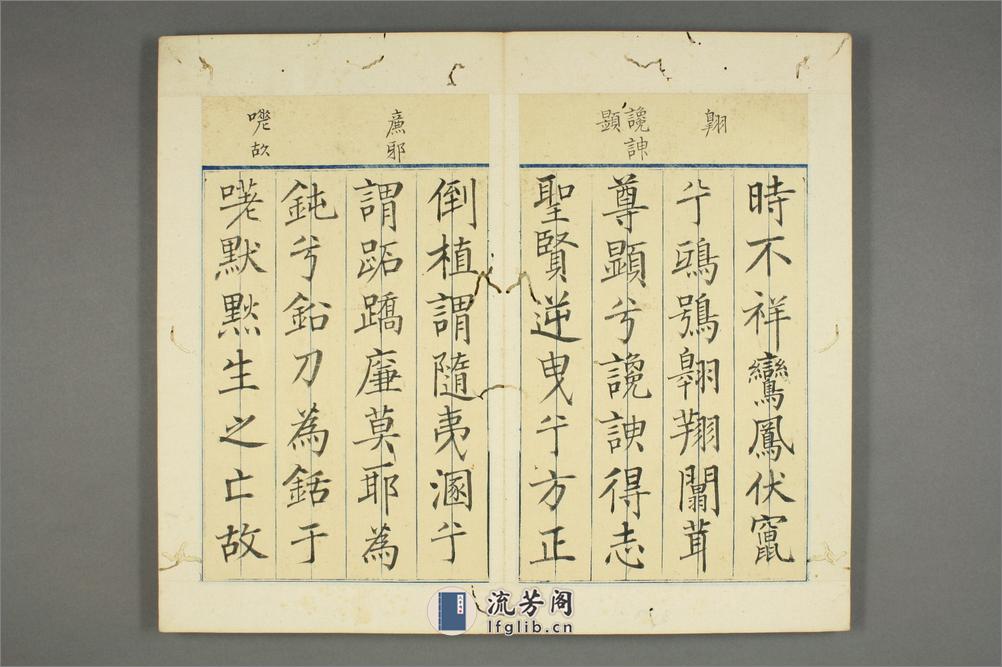 翺
讒諛
顯
時不祥鸞鳳伏竄
兮鴟鴞翺翔闒茸
尊顯兮讒諛得志
聖賢逆曳兮方正
廉邪
嗟故
倒植謂隨夷溷兮
謂跖蹻廉莫耶為
鈍兮鉛刀為銛于
嗟默默生之亡故
流芳阁
lfglib.cn